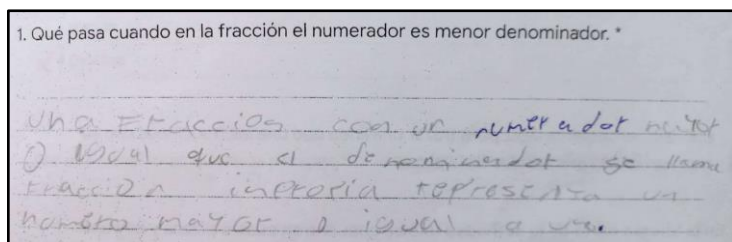 1. Qué pasa cuando en la fracción el numerador es menor denominador. *
una Fraccion con un numerador mayor
O igual que el denominador se llama
Fraccion impropia representa un
numero mayor o igual a uno.